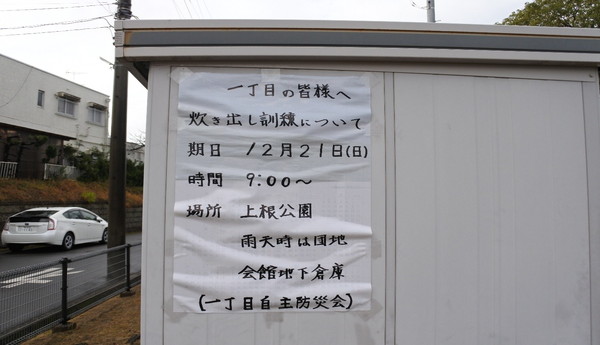 一丁目の皆様へ
炊き出し訓練について
期日 12月21日(日)
時間 9:00〜
場所 上根公園
雨天時は団地
会館地下倉庫
(一丁目自主防災会)